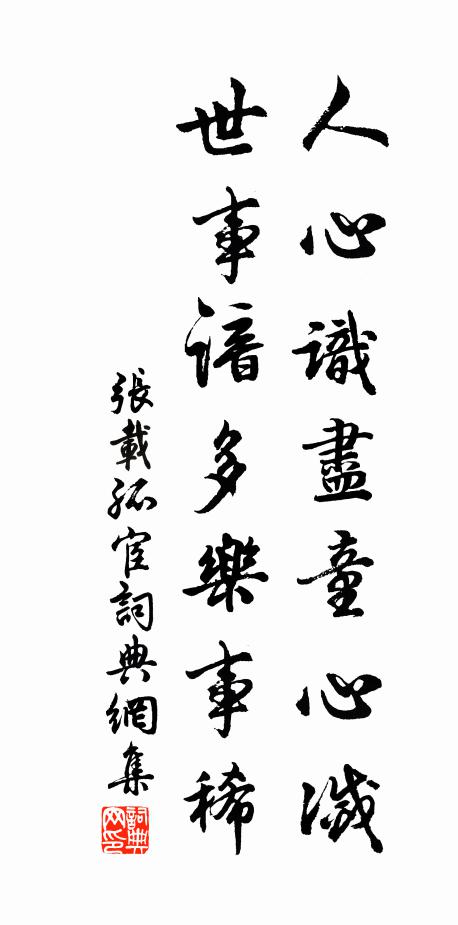 人心識盡童心減
世事諳多樂事稀
張載孤宦詞典網集
詞典
网印